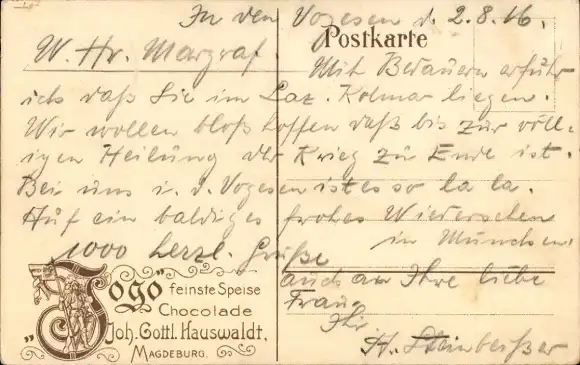 In den Vogesen d. 2.8.16.
Postkarte
W. Hr. Margraf
Mit Bedauern erfuhr
ich daß Sie im Laz. Kolmar liegen.
Wir wollen bloß hoffen daß bis zur völl-
igen Heilung der Krieg zu Ende ist.
Bei uns i. d. Vogesen ist es so la la.
Auf ein baldiges frohes Wiedersehen
in München!
1000 herzl. Grüße
auch an Ihre liebe
Frau
Ihr
H. Steinbeißer
"Togo"
feinste Speise
Chocolade
Joh. Gottl. Hauswaldt,
MAGDEBURG.